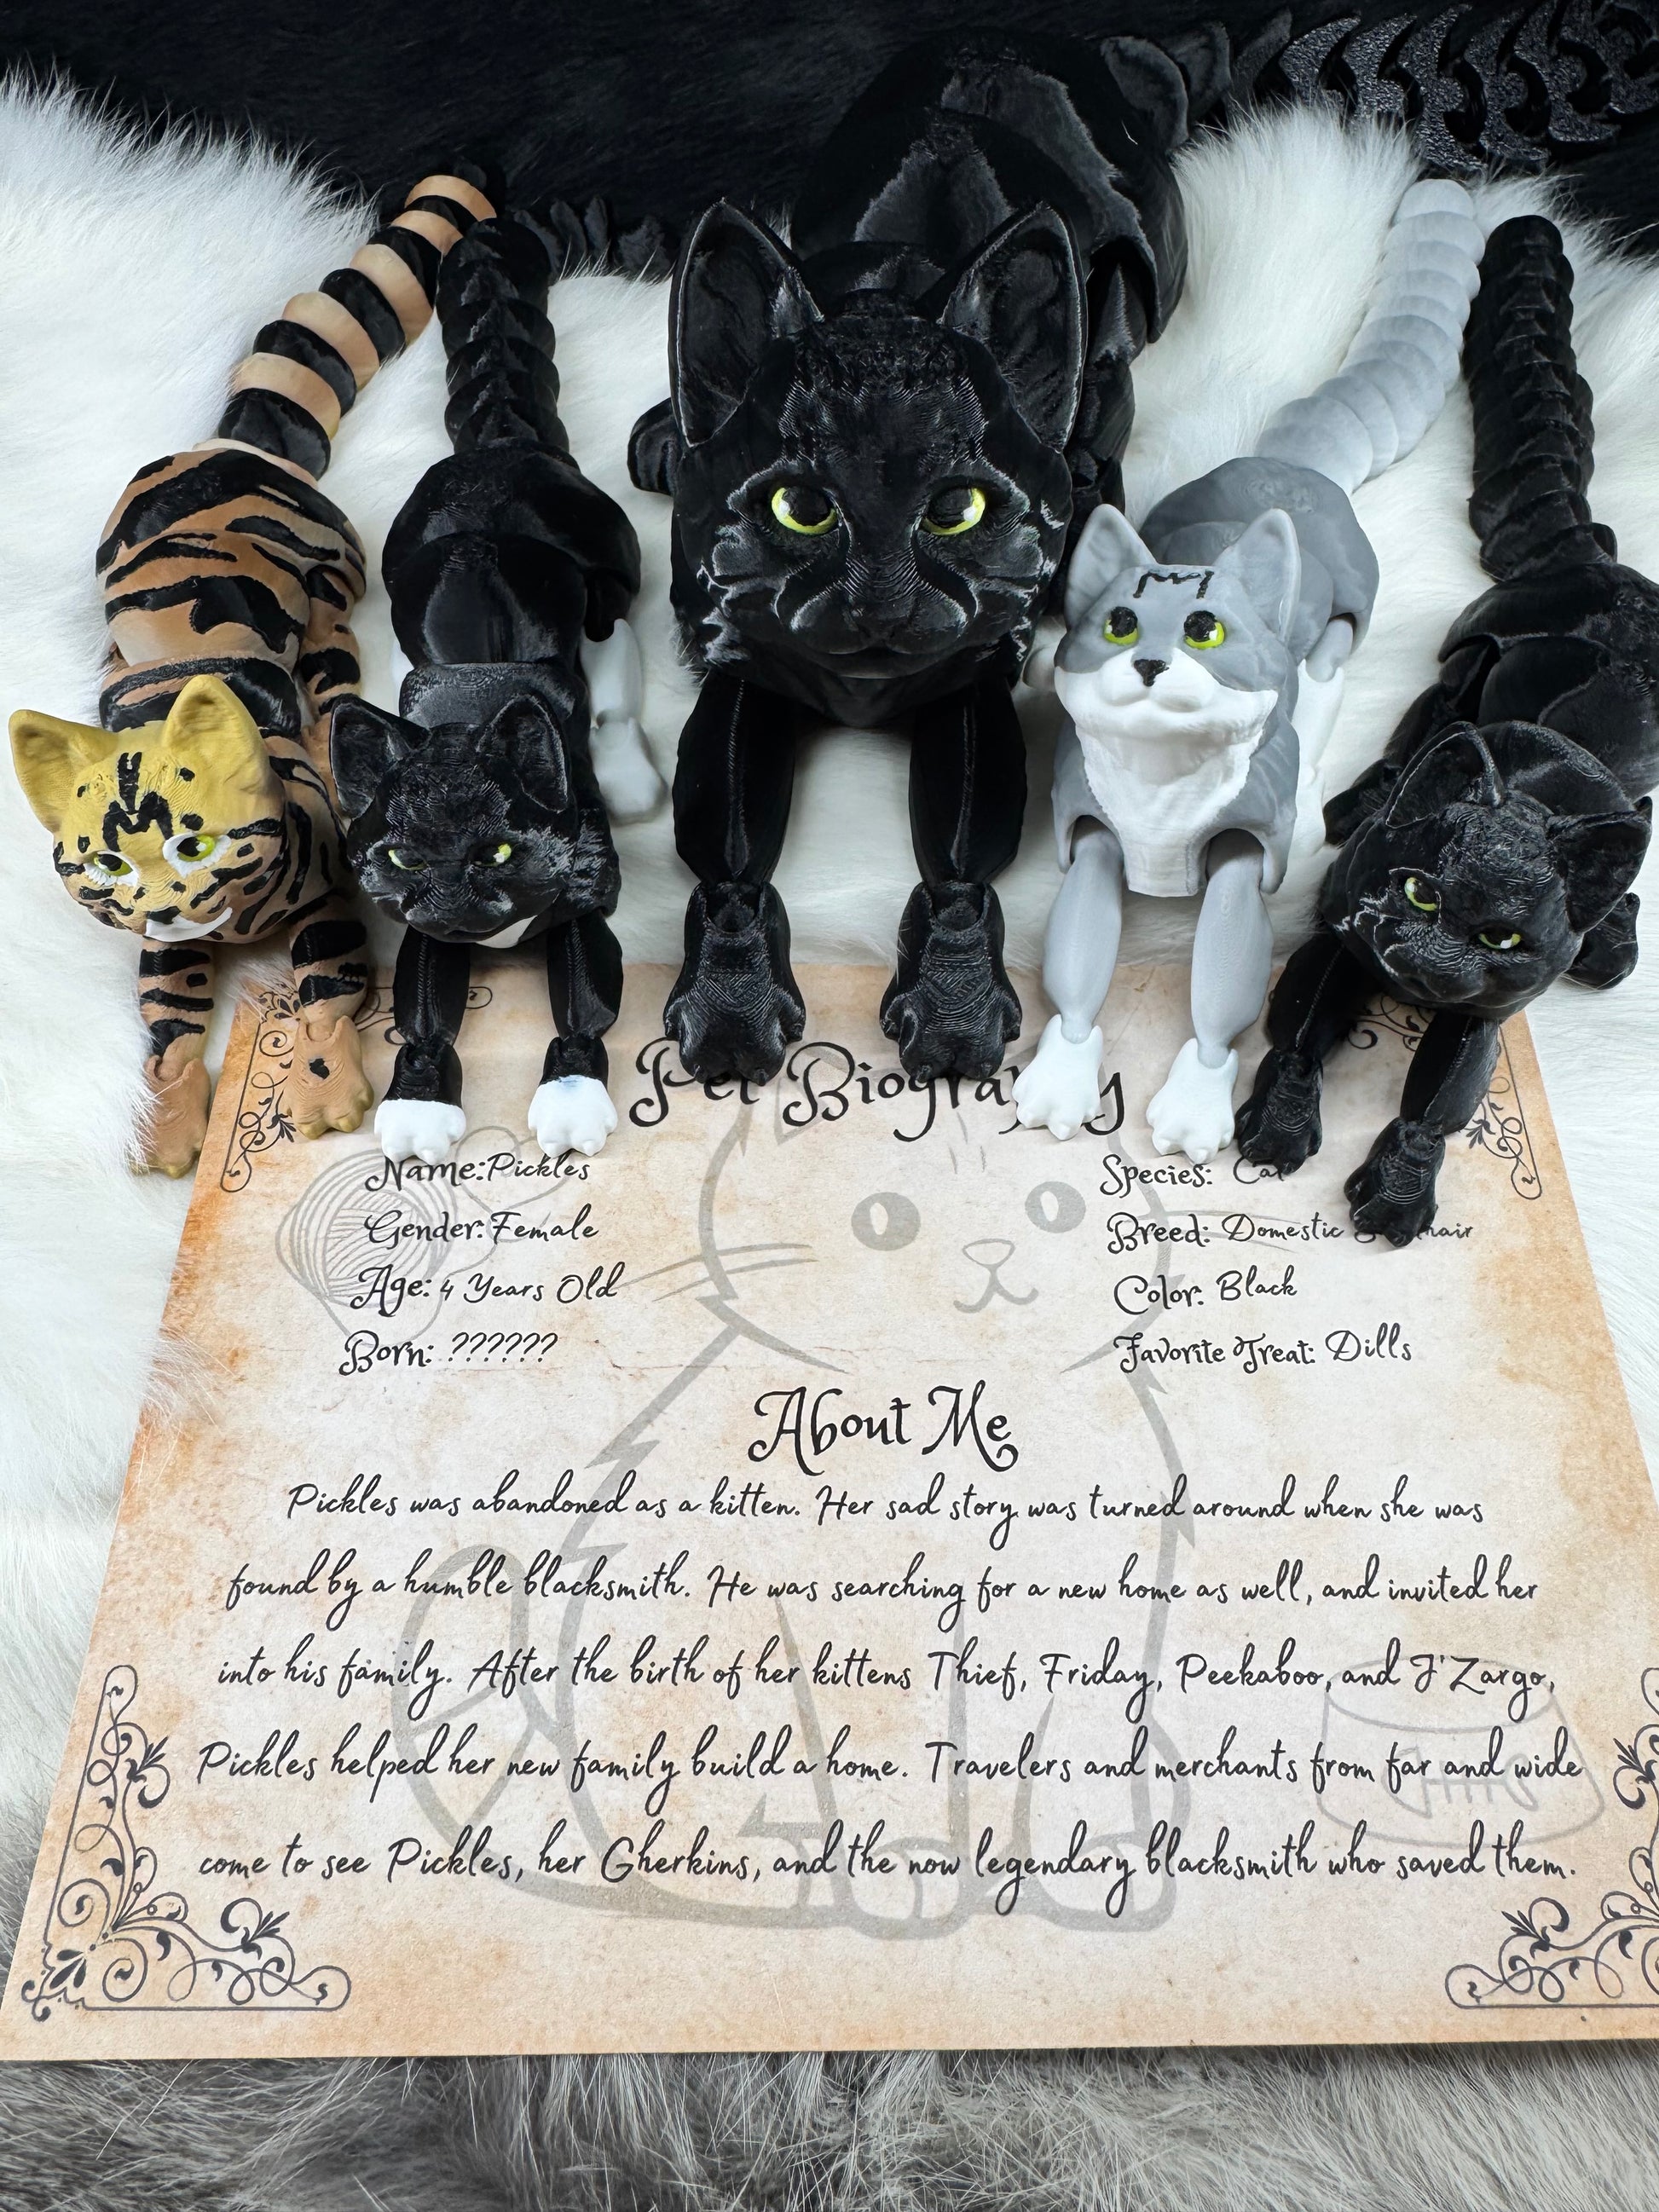 Pet Biography
Name: Pickles
Species: Cat
Gender: Female
Breed: Domestic
Age: 4 Years Old
Color: Black
Born: ??????
Favorite Treat: Dills
About Me
Pickles was abandoned as a kitten. Her sad story was turned around when she was
found by a humble blacksmith. He was searching for a new home as well, and invited her
into his family. After the birth of her kittens Thief, Friday, Peekaboo, and J'Zargo,
Pickles helped her new family build a home. Travelers and merchants from far and wide
come to see Pickles, her Gherkins, and the now legendary blacksmith who saved them.